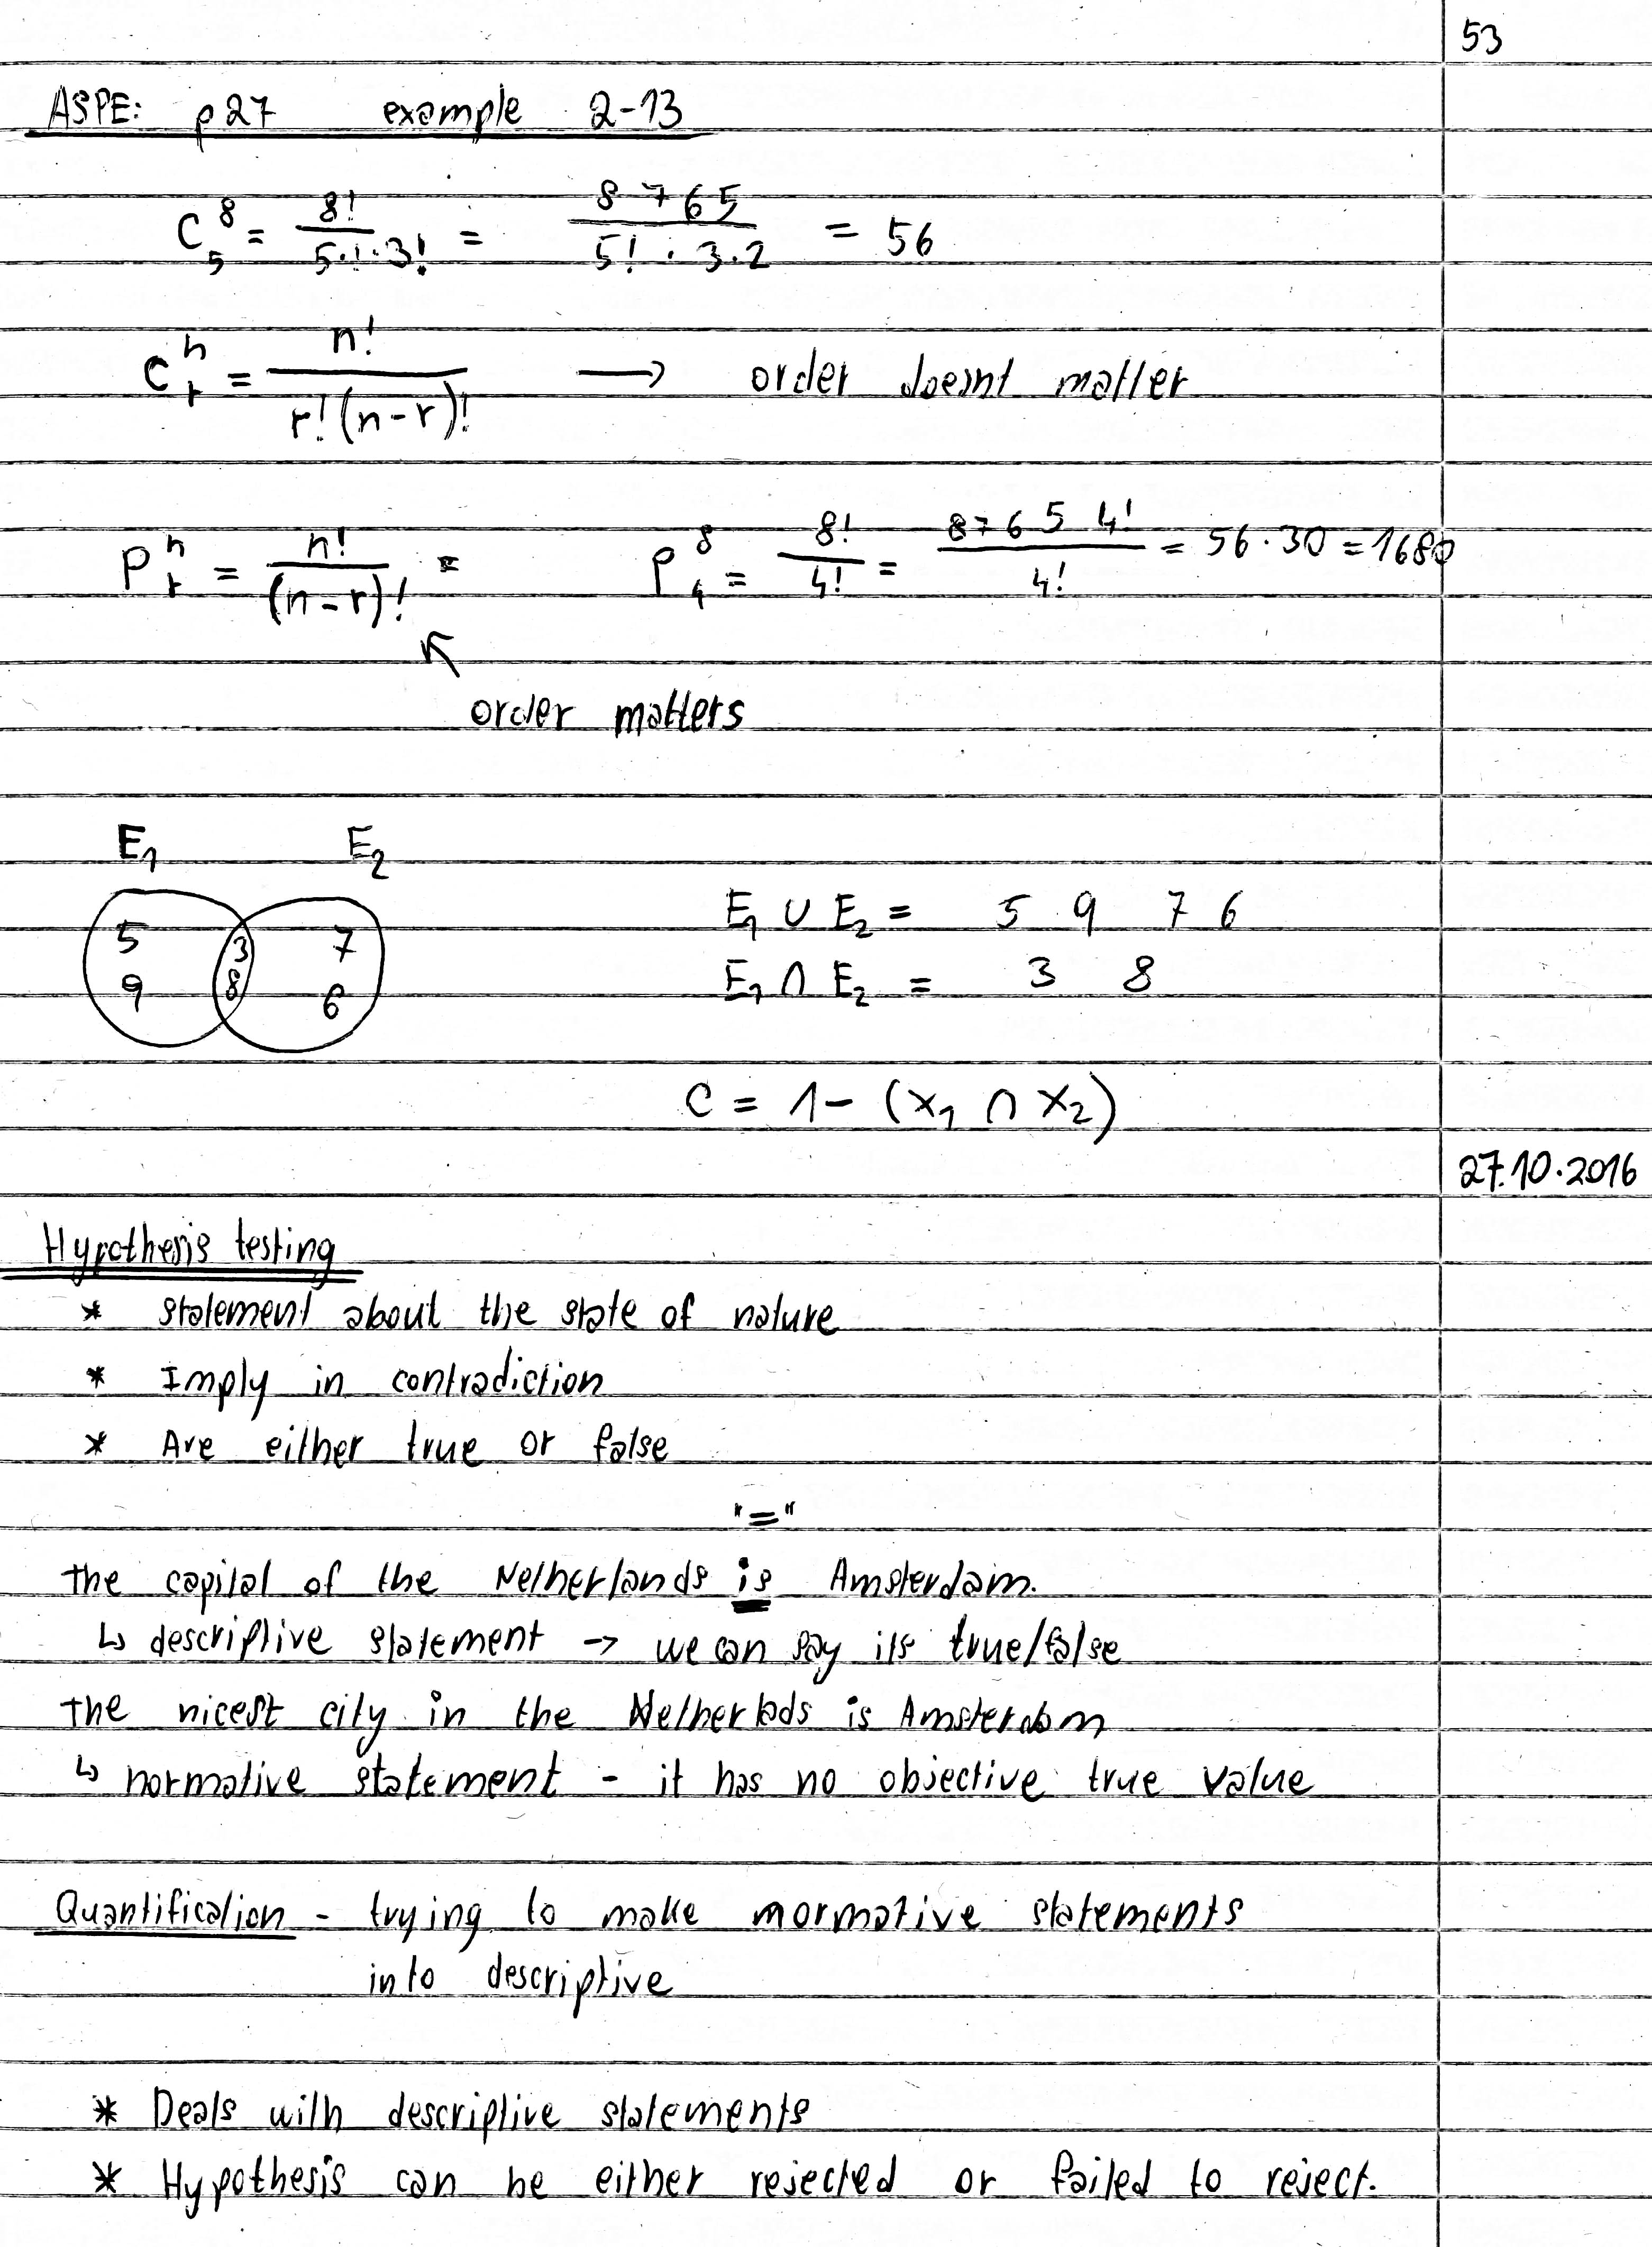 53
ASPE: p27 example 2-13
C⁸₅ = 8! / 5!·3! = 8 7 6 5 / 5! · 3·2 = 56
Cⁿᵣ = n! / r!(n-r)! → order doesnt matter
Pⁿᵣ = n! / (n-r)! = P⁸₄ = 8! / 4! = 8 7 6 5 4! / 4! = 56·30 = 1680
↖
order matters
E₁ E₂
5 3 7
9 8 6
E₁ ∪ E₂ = 5 9 7 6
E₁ ∩ E₂ = 3 8
C = 1 - (x₁ ∩ x₂)
27.10.2016
Hypothesis testing
* statement about the state of nature
* Imply in contradiction
* Are either true or false
"="
the capital of the Netherlands is Amsterdam.
↳ descriptive statement → we can say its true/false
the nicest city in the Netherlads is Amsterdam
↳ normative statement - it has no objective true value
Quantification - trying to make mormative statements
into descriptive
* Deals with descriptive statements
* Hypothesis can be either rejected or failed to reject.